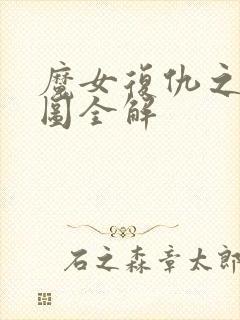 魔女復仇之
圖全解
石之森章太郎